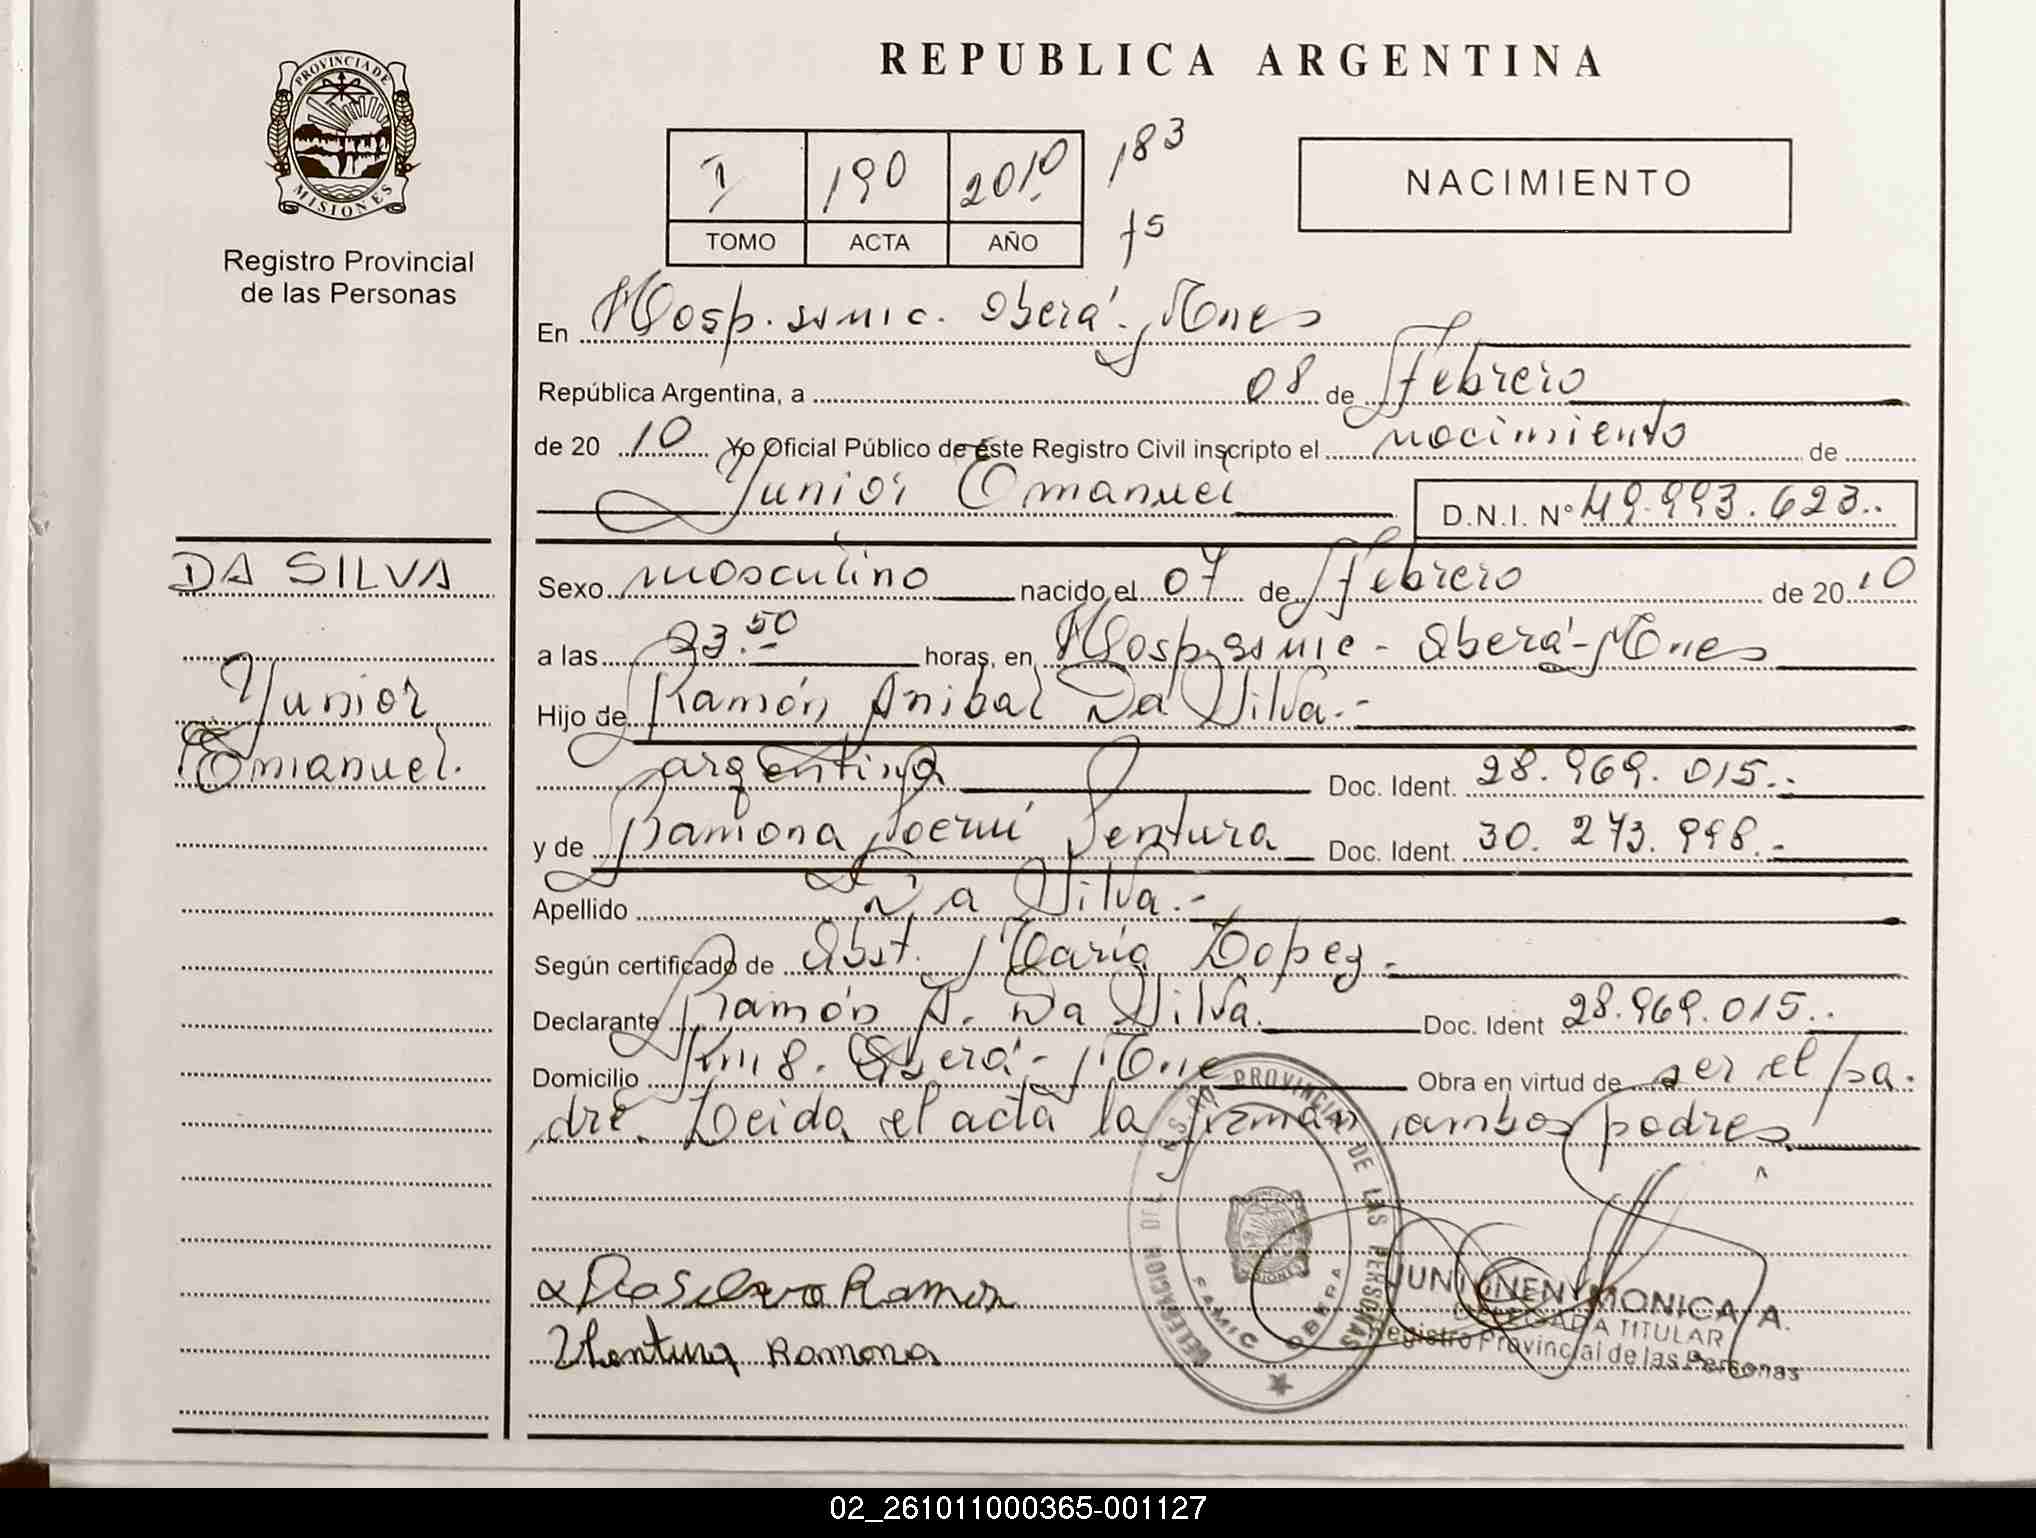 REPUBLICA ARGENTINA
PROVINCIA DE
MISIONES
Registro Provincial
de las Personas
I 190 2010 183
TOMO ACTA AÑO 75
NACIMIENTO
En Hosp. ssmic. Oberá - Mnes
República Argentina, a 08 de Febrero
de 20 10 Yo Oficial Público de este Registro Civil inscripto el nacimiento de
Yunior Emanuel D.N.I. Nº 49.993.623..
DA SILVA
Yunior
Emanuel.
Sexo masculino nacido el 07 de Febrero de 20 10
a las 23.50 horas, en Hosp. ssmic - Oberá - Mnes
Hijo de Ramón Anibal Da Silva.-
argentina Doc. Ident. 28.969.015.-
y de Ramona Noemí Ventura Doc. Ident. 30.273.998.-
Apellido Da Silva.-
Según certificado de Obst. María Lopez.
Declarante Ramón A. Da Silva. Doc. Ident 28.969.015..
Domicilio Km 8. Oberá - Mne Obra en virtud de ser el pa.
dre. Leida el acta la firman ambos padres.
DELEGACION DE REG. PROVINCIAL DE LAS PERSONAS
SAMIC OBERA
Da Silva Ramon
Ventura Ramona
JUNGNEN MONICA A.
DELEGADA TITULAR
Registro Provincial de las Personas
02_261011000365-001127